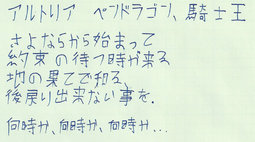 アルトリア ペンドラゴン、騎士王
さよならから始まって
約束の待つ時が来る
地の果てで知る、
後戻り出来ない事を.
何時か、何時か、何時か...